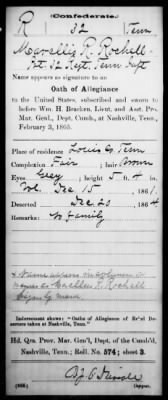 (Confederate.)
R 32 Tenn
Marellis R. Rochell
Pvt 32 Regt. Tenn Inft
Name appears as signature to an
Oath of Allegiance
to the United States, subscribed and sworn to
before Wm. H. Bracken, Lieut, and Asst. Pro.
Mar. Genl., Dept. Cumb., at Nashville, Tenn.,
February 3, 1865.
Place of residence Lewis Co. Tenn
Complexion Fair ; hair Brown
Eyes Grey ; height 5 ft. 4 in.
Vol. Dec 15, 1861
Deserted Dec 20, 1864
Remarks: No Family
Name appears in column of
names as
Rochell
Indorsement shows: "Oaths of Allegiance of Rebel De-
serters taken at Nashville, Tenn."
Hd. Qrs. Prov. Mar. Gen'l, Dept. of the Cumb'd,
Nashville, Tenn.; Roll No. 574; sheet 3.
(656)
Copyist.